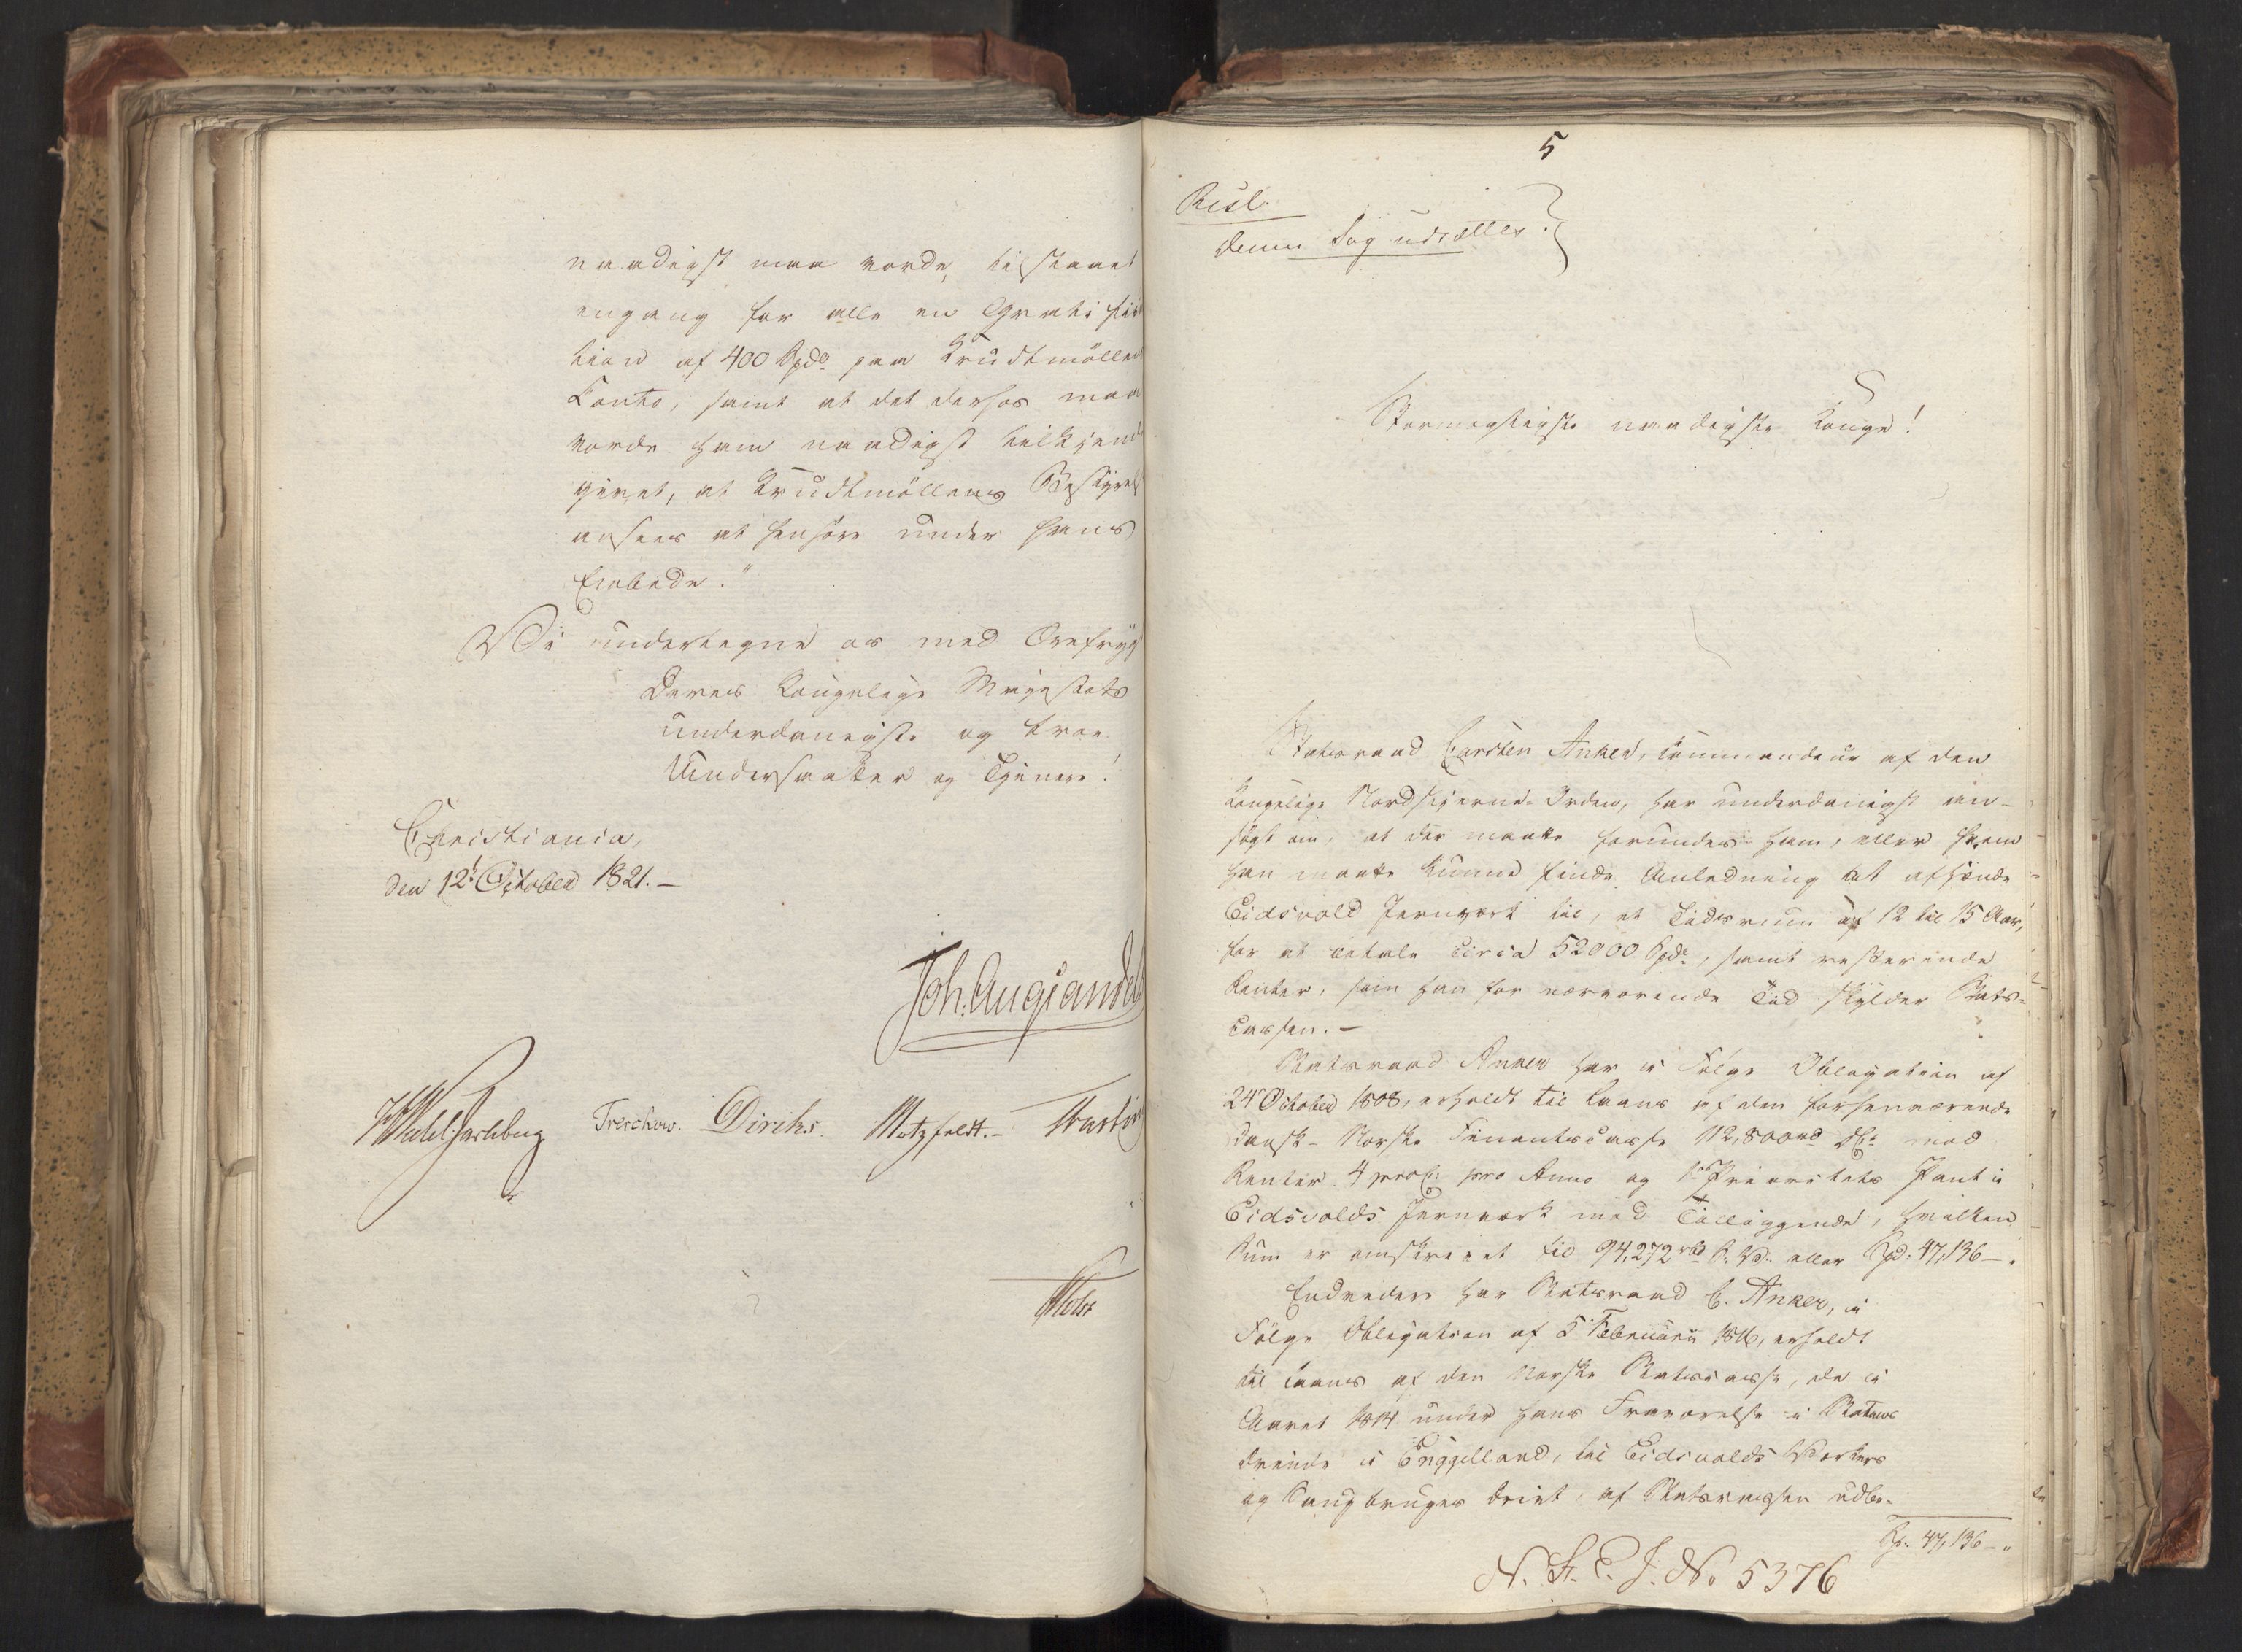 naadigst maa vorde tilstaaet
engang for alle en Gratifika
tion af 400 Spd. paa Krudtmöllens
Conto, samt at det derhos maa
vorde ham naadigst tilkjende
givet, at Krudtmöllens Bestyrels
ansees at henhöre under hans
Embede."
Vi undertegne os med Ærefrygt
Deres Kongelige Majestæts
underdanigste og troe
Undersaatter og Tjenere!
Christiania,
den 12t October 1821. —
Joh. Aug. Sandels
H Wedel Jarlsberg Treschow. Diriks. Motzfeldt. — Krafft
Holst
5
Resl.
Denne Sag udsættes.
Stormægtigste naadigste Konge!
Statsraad Carsten Anker, Commandeur af den
Kongelige Nordstjerne-Orden, har underdanigst an-
sögt om, at der maatte forundes ham, eller hvem
han maatte kunne finde Anledning at afhænde
Eidsvold Jernværk til, et Tidsrum af 12 til 15 Aar,
for at betale circa 52000 Spd., samt resterende
Renter, som han for nærværende Tid skylder Stats-
cassen. —
Statsraad Anker har i Fölge Obligation af
24 October 1808, erholdt til Laans af den forhenværende
Dansk-Norske Finantscasse 112,800 rd. D.C. mod
Renter 4 proC. pro Anno og 1ste Prioritets Pant i
Eidsvolds Jernværk med Tilliggende, hvilken
Sum er omskrevet til 94,272 rbd. S.V. eller Spd. 47,136 —.
Endvidere har Statsraad C. Anker, i
Fölge Obligation af 5 Februarii 1816, erholdt
til Laans af den Norske Statscasse, de i
Aaret 1814 under hans Fraværelse i Statens
Ærinde i Engelland, til Eidsvolds Værkers
og Saugbruges Drivt, af Statscassen udbe-
Sp. 47,136 — "
N. St. E. J. No 5376